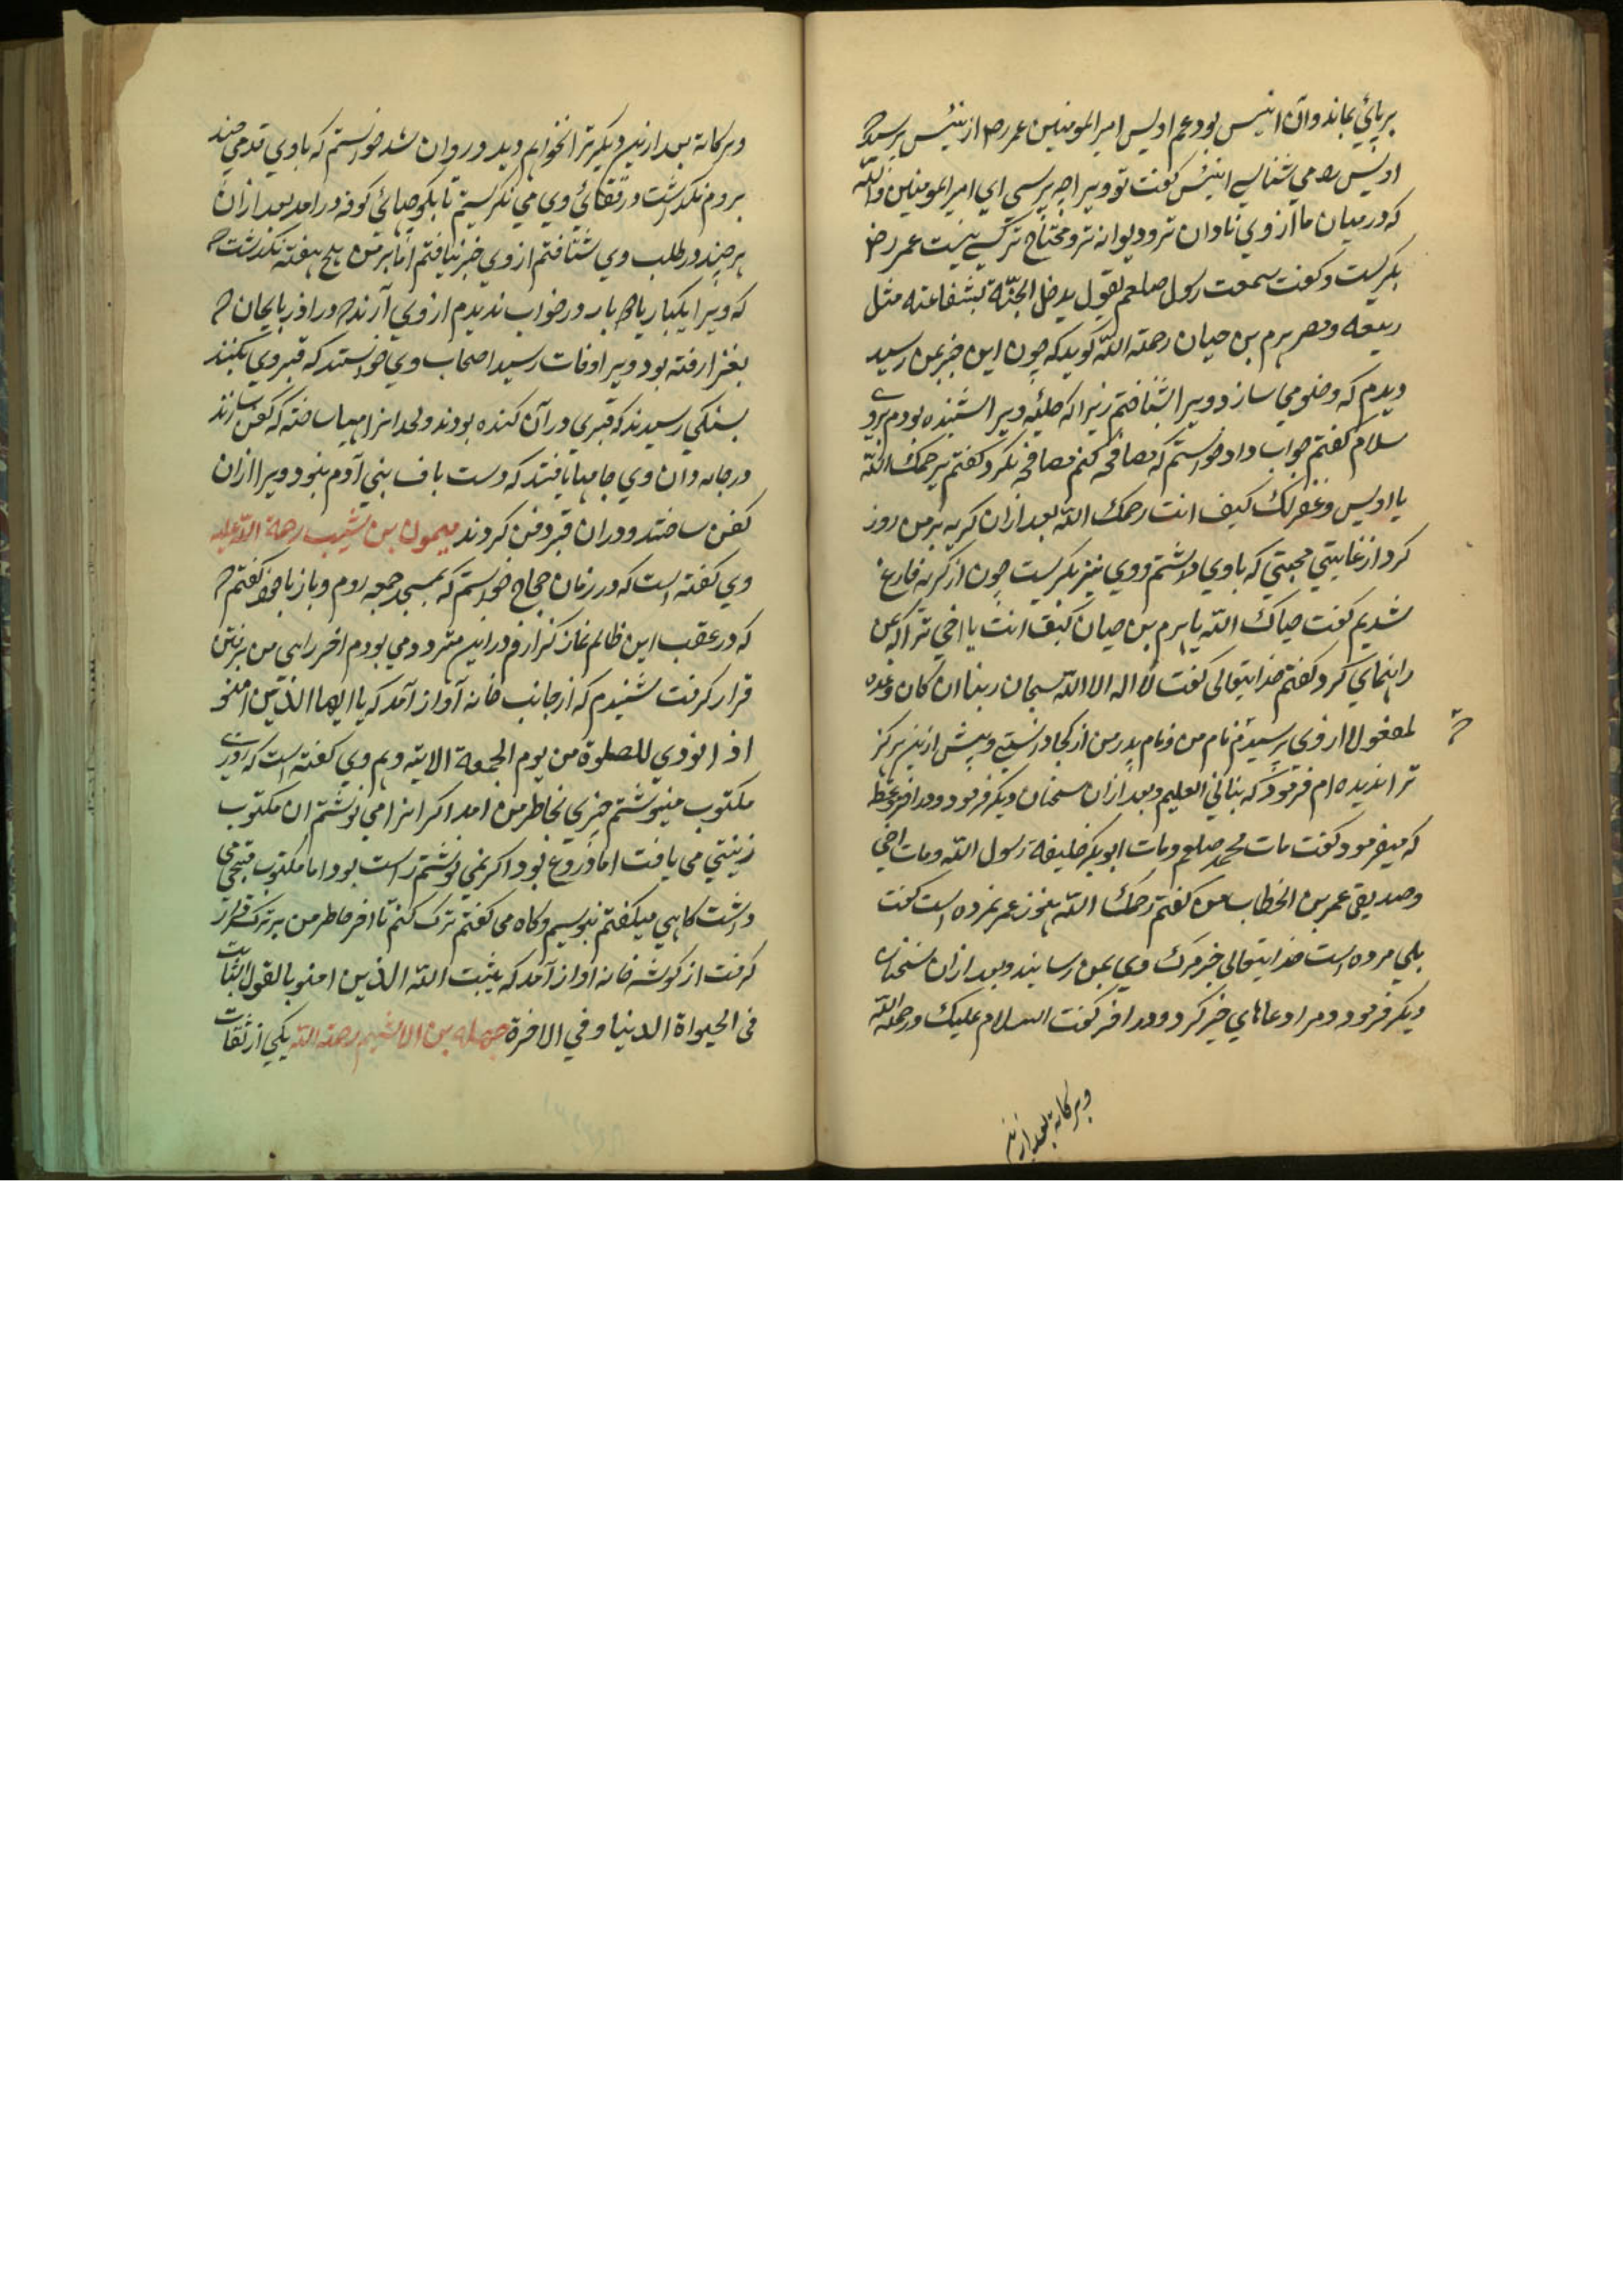 بر پائي بماند وآن انيس بود عم اويس امير المومنين عمر رض از انيس پرسيد كه
اويس را مي شناسي انيس كفت تو ويرا چه پرسي اي امير المومنين والله
كه درميان ما از وي نادان تر و ديوانه تر و محتاج تر كسي نيست عمر رض
بكريست وكفت سمعت رسول صلعم يقول يدخل الجنّة بشفاعته مثل
ربيعه ومضر هرم بن حيان رحمة الله كويد كه چون اين خبر بمن رسيد
ديدم كه وضو مي سازد ويرا شناختم زيرا كه حليه ويرا شنيده بودم بروي
سلام كفتم جواب داد خواستم كه مصافحه كنم مصافحه نكرد كفتم يرحمك الله
يا اويس وغفرلك كيف انت رحمك الله بعد ازان كريه بر من زور
كرد از غايتي محبتي كه باوي داشتم ووي نيز بكريست چون از كريه فارغ
شديم كفت حياك الله يا هرم بن حيان كيف انت يا اخي ترا كه بمن
راهنماي كرد كفتم خدايتعالى كفت لا اله الا الله سبحان ربنا ان كان وعده
لمفعولا از وي پرسيدم نام من ونام پدر من از كجا دانستي وپيش ازين هركز
ترا نديده ام فرمود كه نبّاني العليم وبعد ازان سخنان ديكر فرمود ودر اخر وعظ
كه ميفرمود كفت مات محمد صلعم ومات ابوبكر خليفة رسول الله ومات اخي
وصديقي عمر بن الخطاب من كفتم رحمك الله هنوز عمر نمرده است كفت
بلي مرده است خدايتعالى خبر مرك وي بمن رسانيد وبعد ازان سخنان
ديكر فرمود ومرا دعاهاي خير كرد ودر اخر كفت السلام عليك ورحمة الله
وبركاته بعد ازين
وبركاته بعد ازين ديكر ترا نخواهم ديد و روان شد خواستم كه باوي قدمي چند
بروم نكذاشت در قفائي وي مي نكريستم تا بكوچهائي كوفه درامد بعد ازان
هر چند در طلب وي شتافتم از وي خبر نيافتم اما بر من هيچ هفته نكذشت
كه ويرا يكبار يا دو بار در خواب نديدم از وي آرند كه در اذربايجان
بغزا رفته بود ويرا وفات رسيد اصحاب وي خواستند كه قبر وي بكنند
بسنكي رسيدند كه قبري در آن كنده بودند ولحد انرا مهيا ساخته كه كفن سازند
در جامه دان وي جامها يافتند كه دست باف بني آدم نبود ويرا ازان
كفن ساختند ودران قبر دفن كردند ميمون بن شبيب رحمة الله عليه
وي كفته است كه در زمان حجاج خواستم كه بمسجد جمعه روم وباز با خود كفتم
كه در عقب اين ظالم نماز كزارم و درين متردد مي بودم اخر راي من بر رفتن
قرار كرفت شنيدم كه از جانب خانه آواز آمد كه يا ايها الذين امنو
اذا نودي للصلوة من يوم الجمعة الايته وهم وي كفته است كه روزي
مكتوب مينوشتم چيزي بخاطر من امد اكر انرا مي نوشتم ان مكتوب
زينتي مي يافت اما دروغ بود اكر نمي نوشتم راست بود اما مكتوب قبحي
داشت كاهي ميكفتم بنويسم وكاه مي كفتم ترك كنم تا اخر خاطر من بر ترك قرار
كرفت از كوشه خانه اواز آمد كه يثبت الله الذين امنو بالقول الثابت
في الحيواة الدنيا وفي الاخرة صله بن الاشيم رحمة الله يكي از ثقات